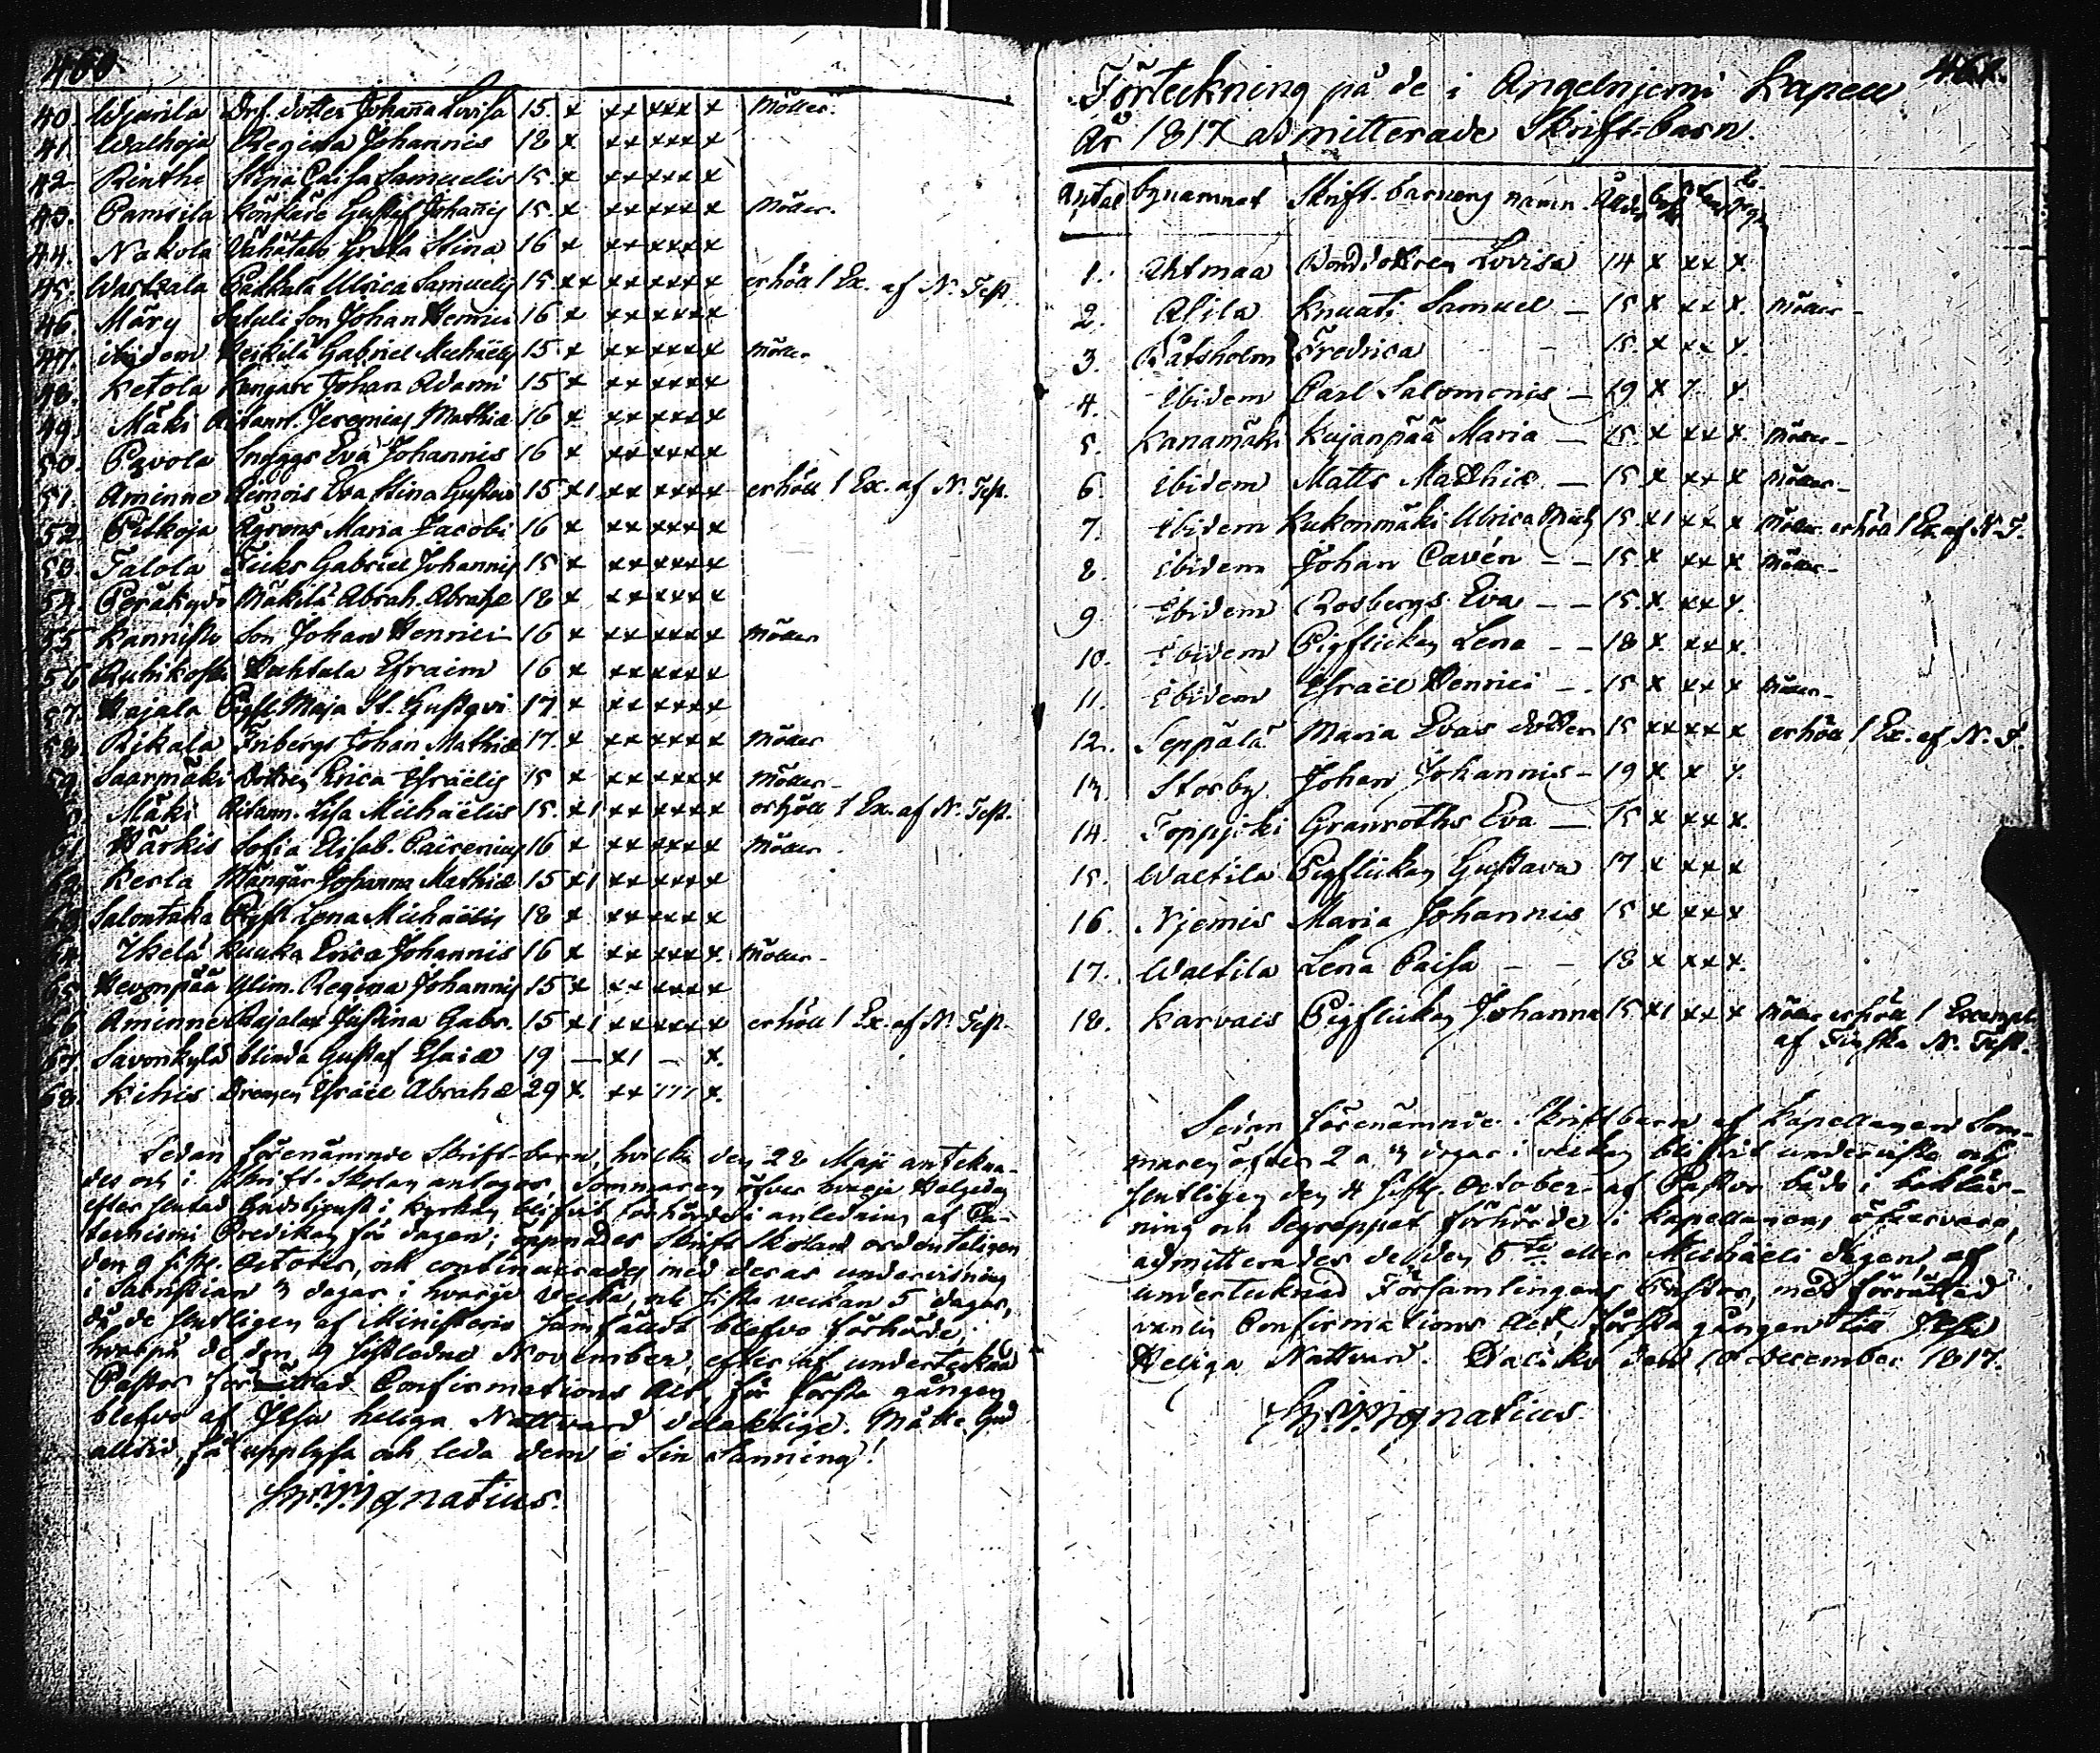 460.
40. Wjurila Drf. dotter Johanna Lovisa 15. x xx xxx x Möller.
41. Walhoja Regina Johannis 18 x xx xxx x
42. Rinthe Caisa Samuelis 15. x xx xxx x
43. Pamsila Gustaf Johannis 15. x xx xxx x Möller.
44. Nakola Vähätalo Greta Stina 16 x xx xxx x
45. Wartsala Pakkala Ulrica Samuelis 15. xx xx xxx x erhöll 1 Ex. af N. Test.
46. Märy son Johan Henrici 16 x xx xxx x
47. ibidem Heikilä Gabriel Michaëlis 15. x xx xxx x Möller
48. Ketola Kangare Johan Adami 15 x xx xxx x
49. Mäki Jeremias Mathiæ 16 x xx xxx x
50. Pavola Snyggs Eva Johannis 16 x xx xxx x
51. Aminne Eva Stina Gustavi 15 x1 xx xxx x erhöll 1 Ex. af N. Test.
52. Pitkoja Ågrens Maria Jacobi 16 x xx xxx x
53. Talola Gabriel Johannis 15 x xx xxx x
54. Peräkylä Mäkilä Abrah. Abrahæ 18 x xx xxx x
55 Kannisto Son Johan Henrici 16 x xx xxx x Möller
56 Ruhikoski Huhtala Efraim 16 x xx xxx x
57. Hajala Pigfl. Maja St. Gustavi 17. x xx xxx x
58. Rikala Fribergs Johan Mathiæ 17. x xx xxx x Möller
59. Saarmäki Erica Israëlis 15 x xx xxx x Möller
Mäki Lisa Michaëlis 15. x1 xx xxx x erhöll 1 Ex. af N. Test.
Härkis Sofia Elisab. 16 x xx xxx x Möller
Kerla Johanna Mathiæ 15 x1 xx xxx x
63. Salontaka Pigfl. Lena Michaëlis 18 x xx xxx x
64. Ikelä Kuuka Erica Johannis 16 x xx xxx x. Möller
65 Hevonpää Regina Johannis 15 x xx xxx x
66 Aminne Justina Gabr. 15 x1 xx xxx x erhöll 1 Ex. af N. Test.
67. Savonkylä blinda Gustaf Esaiæ 19 — x1 — x.
68. Kihis Drengen Israël Abrahæ 29 x. xx 111 x.
Sedan förenämnde Skrift-barn, hvilka den 28 Maji antekna-
des och i Skrift-Skolan antogos, Sommaren öfver hvarje Helgedag
efter slutad Gudstjenst i Kyrkan blifvit förhörde i anledning af Ca-
techismi Predikan för dagen; öppnades Skrift Skolan ordenteligen
den 9 sistl. October, och continuerades med deras undervisning
i Sacristian 3 dagar i hvarje vecka, och sista veckan 5 dagar,
då de slutligen af Ministerio samfäldt blefvo förhörde,
hvarpå de den 9 sistledne November, efter af undertecknad
Pastor förrättad Confirmations Act, för första gången
blefvo af Jesu heliga Nattvard delaktige. Måtte Gud
alltid få upplysa och leda dem i Sin sanning!
Ignatius.
461.
Förteckning på de i Angelnjemi Kapell
År 1817 admitterade Skrift-barn.
Antal bynamnet Skrift-barnens namn. Ålder
1. Ahtmaa Lovisa 14 x xx x.
2. Alila Knuati Samuel — 15 x xx x. Möller
3. Båtsholm Fredrica — 15. x xx x.
4. Ibidem Carl Salomonis — 19 x x. x.
5. Kanamäki Kujanpää Maria — 15. x xx x. Möller
6. Ibidem Matts Mathiæ — 15 x xx x Möller
7. Ibidem Kukonmäki Ulrica 15. x1 xx x Möller erhöll 1 Ex. af N. T.
8. Ibidem Johan Cavén — — 15. x xx x Möller
9. Ibidem Rosbergs Eva — — 15. x. xx x.
10. Ibidem Pigflickan Lena — — 18 x. xx x.
11. Ibidem Israël Henrici — — 15 x xx x Möller
12. Seppälä Maria Evas dotter 15 xx xx x erhöll 1 Ex. af N. T.
13. Storby. Johan Johannis — 19 x x x.
14. Toppjoki Granroths Eva — 15 x xx x.
15. Waltila Pigflickan Gustava 17 x xx x
16. Njemis Maria Johannis 15 x xx x
17. Waltila Lena Caisa — — 18 x xx x.
18. Karvais Pigflickan Johanna 15 x1 xx x Möller erhöll 1 Exempl.
af Finska N. Test.
Sedan förenämnde Skriftbarn af Kapellanen Som-
maren öfver 2 a 3 dagar i veckan blifvit underviste och
slutligen den 4 sistl. October af Pastor både i boklär-
ning och begreppet förhörde i Kapellanens öfvervaro,
admitterades de den 5te eller Michaëli dagen, af
undertecknad Församlingens Pastor, med förrättad
vanlig Confirmations Act, första gången till Jesu
Heliga Nattvard. Haliko den 10 December 1817.
Ignatius.